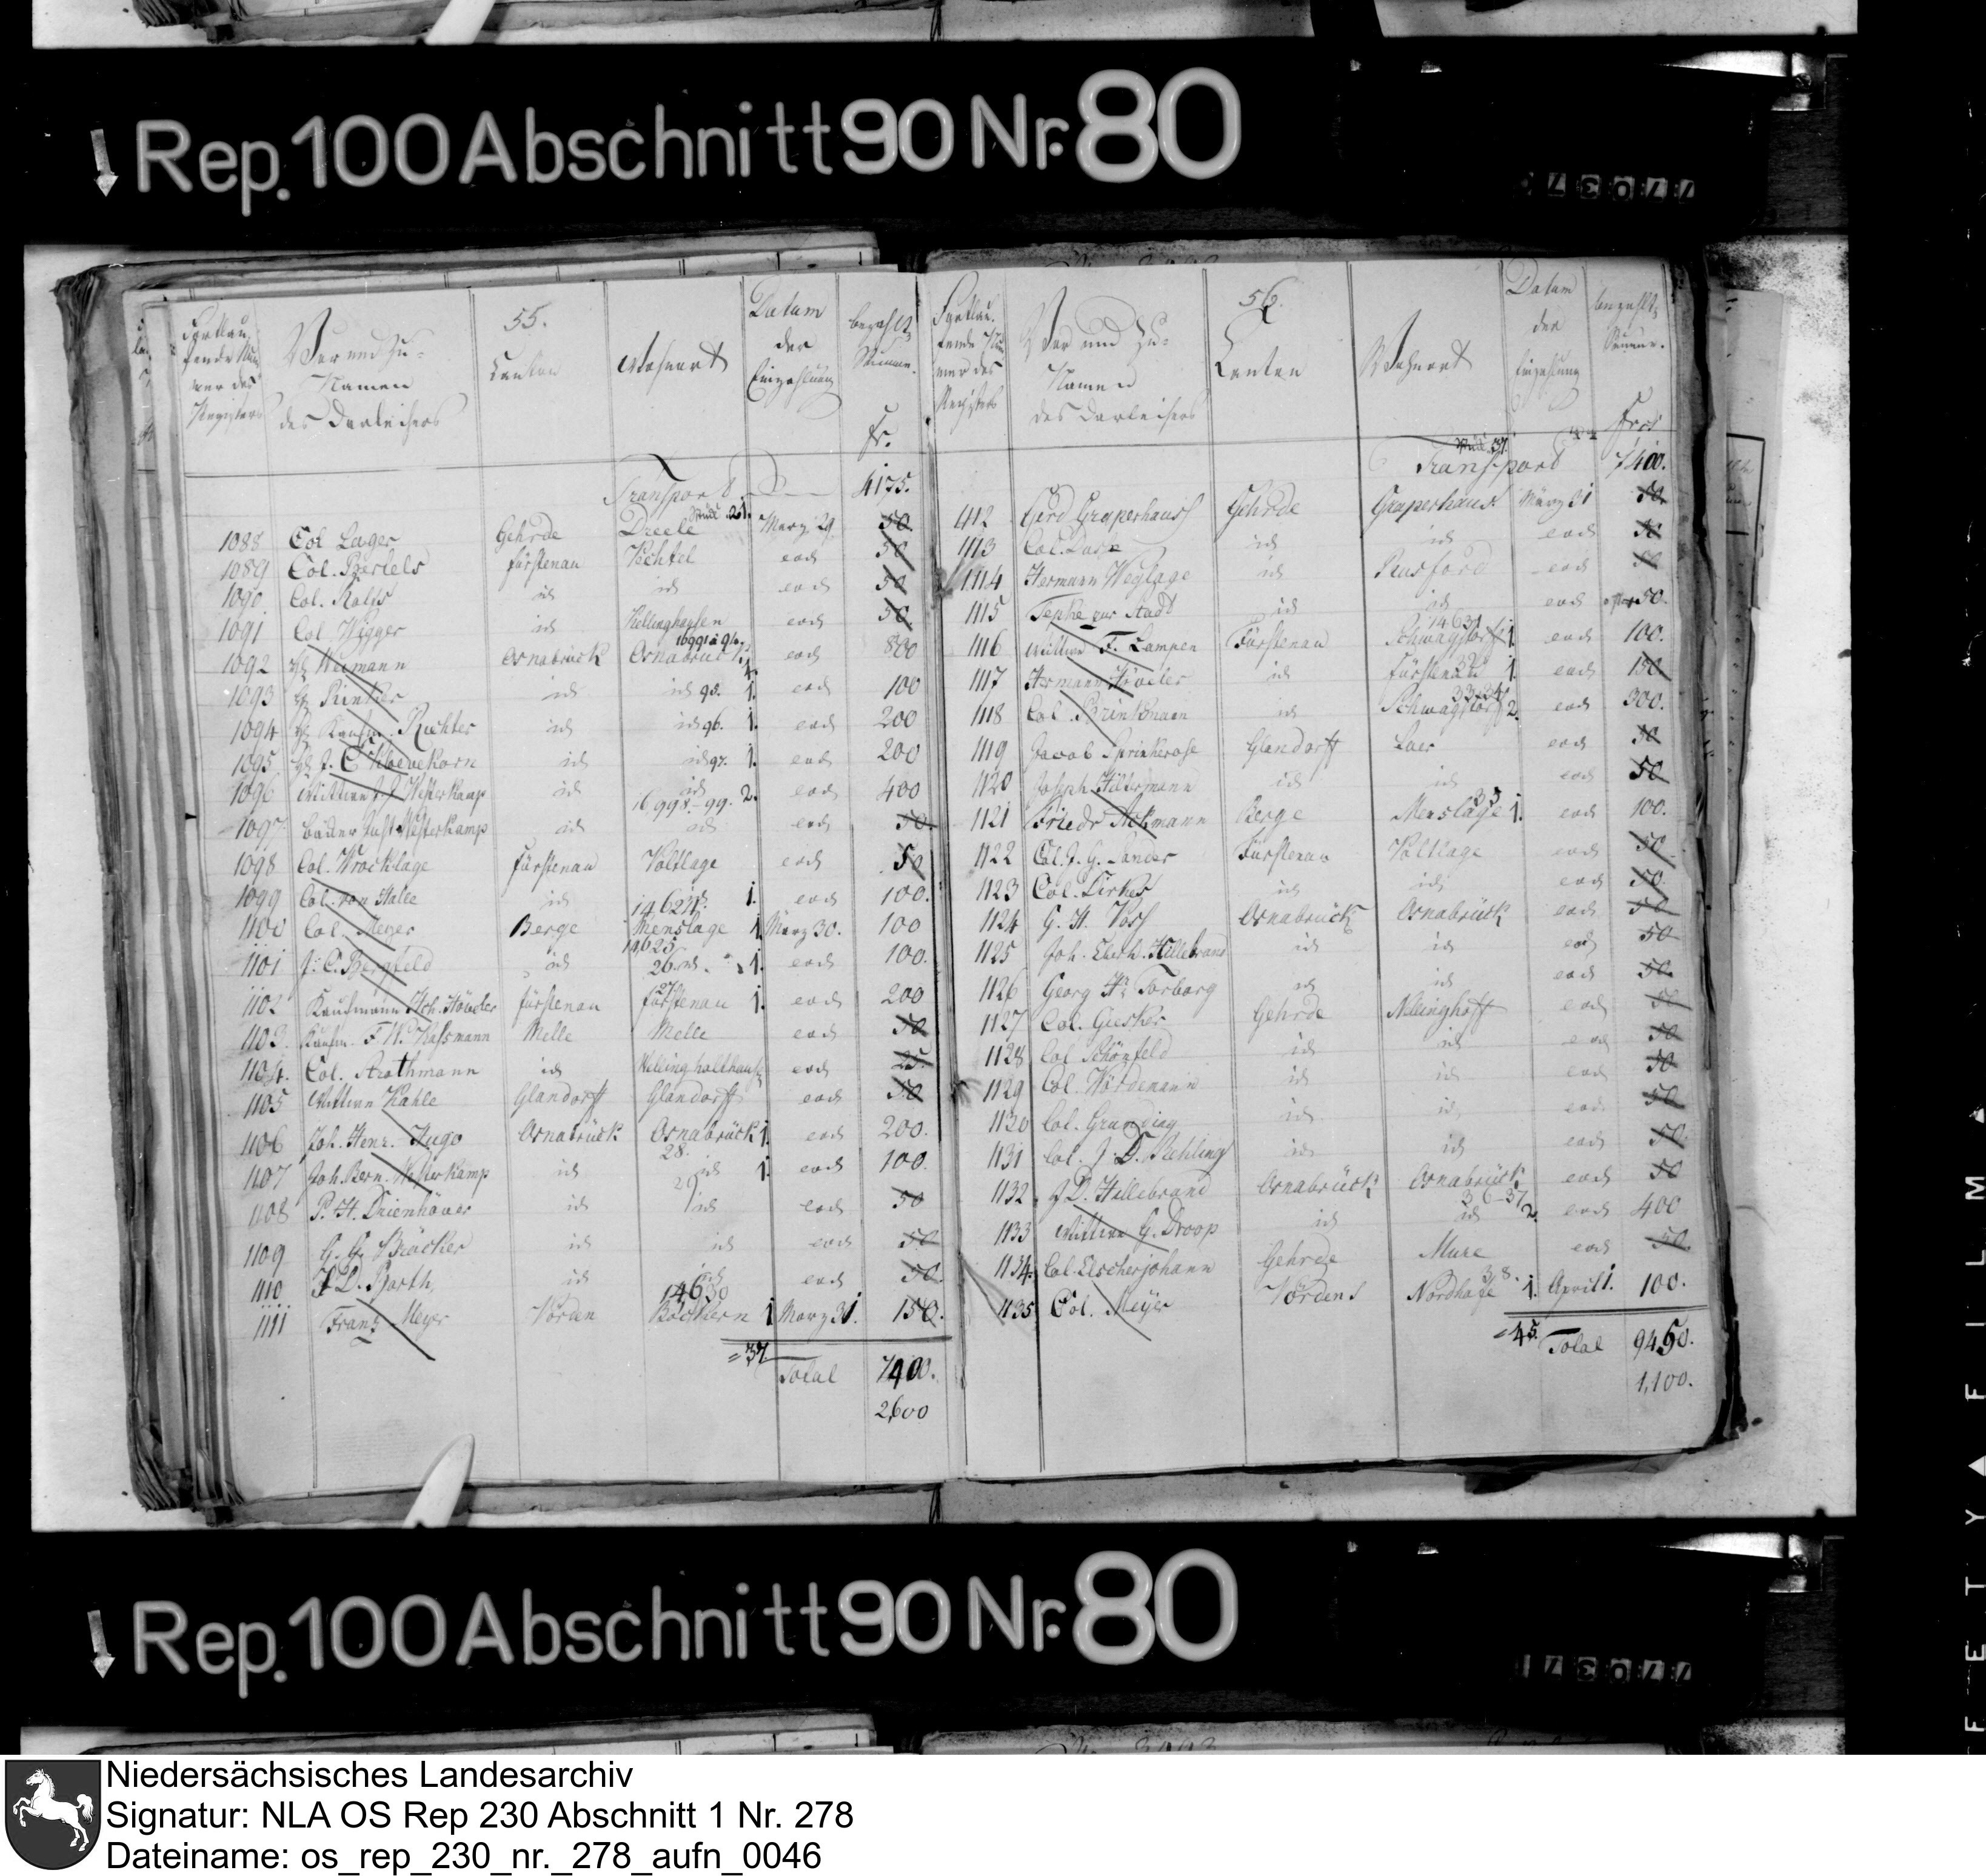 Rep. 100 Abschnitt 90 Nr. 80
77037
55.
Fortlaufende Nummer des Registers
Vor und Zu-Namen des Darleihers
Canton
Wohnort
Datum der Einzahlung
bezahlte Summe.
fr.
Transport 4175.
1088 Col Lager Gehrde Dreele März 29. 50
1089 Col. Bertels Fürstenau Vechtel eod 50
1090 Col. Rolfs id id eod 50
1091 Col Wigger id Hellinghausen eod 50
1092 Neumann Osnabrück Osnabrück eod 800
1093 Rinker id id 95. 1. eod 100
1094 Kaufm. Richter id id 96. 1. eod 200
1095 J. C Thorekorn id id 97. 1. eod 200
1096 Wittwe J. J. Westerkamp id id 16998-99. 2. eod 400
1097 Just Westerkamp id id eod 50
1098 Col. Wrocklage Fürstenau Voltlage eod 50
1099 Col. von Halle id id 1. eod 100.
1100 Col. Meyer Berge Menslage 1. März 30. 100
1101 J. C. Bergfeld id 26. id 1. eod 100.
1102 Kaufmann Joh. Höveler Fürstenau Fürstenau 1. eod 200
1103. Kaufm. F. W. Melle Melle eod 50
1104. Col. Arothmann id Wellingholthausen eod 25.
1105 Wittwe Kahle Glandorff Glandorff eod 50
1106 Joh. Henr. Hugo Osnabrück Osnabrück 1. eod 200.
1107 Joh. Bern. Westerkamp id 28. id 1. eod 100.
1108 P. H. Drienhöver id id eod 50
1109 G. G. Bröcker id id eod 50
1110 J D. Barth id id eod 50.
1111 Franz Meyer Vörden 14630 1 März 31. 150.
=37 Total 7400.
2600
56.
Fortlaufende Nummer des Registers
Vor und Zu-Namen des Darleihers
Canton
Wohnort
Datum der Einzahlung
bezahlte Summe.
Frcs
Transport 7400.
1112 Gerd Graperhaus Gehrde Graperhaus März 31 50
1113 Col. id id eod 50
1114 Hermann Weglage id Rusford eod 50
1115 Tepke zur Stadt id id eod 50.
1116 Wittwe F. Lampen Fürstenau 14631 Schwagstorf 1. eod 100.
1117 Hermann Höveler id Fürstenau 1. eod 150.
1118 Col. Brinkmann id Schwagstorf 2. eod 300.
1119 Jacob Sprinkerose Glandorff Laer eod 50
1120 Joseph Hiltermann id id eod 50
1121 Friedr Ackmann Berge Menslage 1. eod 100.
1122 Col. J. G. Sander Fürstenau Voltlage eod 50.
1123 Col. Dirkes id id eod 50.
1124 G. H. Voss Osnabrück Osnabrück eod 50
1125 Joh. Eberh. Hillebrand id id eod 50
1126 Georg Hr Torbarg id id eod 50.
1127 Col. Giesker Gehrde Nellinghoff eod 50
1128 Col Schönfeld id id eod 50
1129 Col. Wördemann id id eod 50
1130 Col. Grunding id id eod 50
1131 Col. J. D. Rehling id id eod 50.
1132 J D. Hillebrand Osnabrück Osnabrück eod 50
1133 Wittwe G. Droop id 36-37 id 2. eod 400
1134. Col. Elscherjohann Gehrde eod 50.
1135 Col. Meijer Vörden 38. 1. April 1. 100.
=45. Total 9450.
1,100.
FETY▲FILM
Rep. 100 Abschnitt 90 Nr. 80
77037
Niedersächsisches Landesarchiv
Signatur: NLA OS Rep 230 Abschnitt 1 Nr. 278
Dateiname: os_rep_230_nr._278_aufn_0046